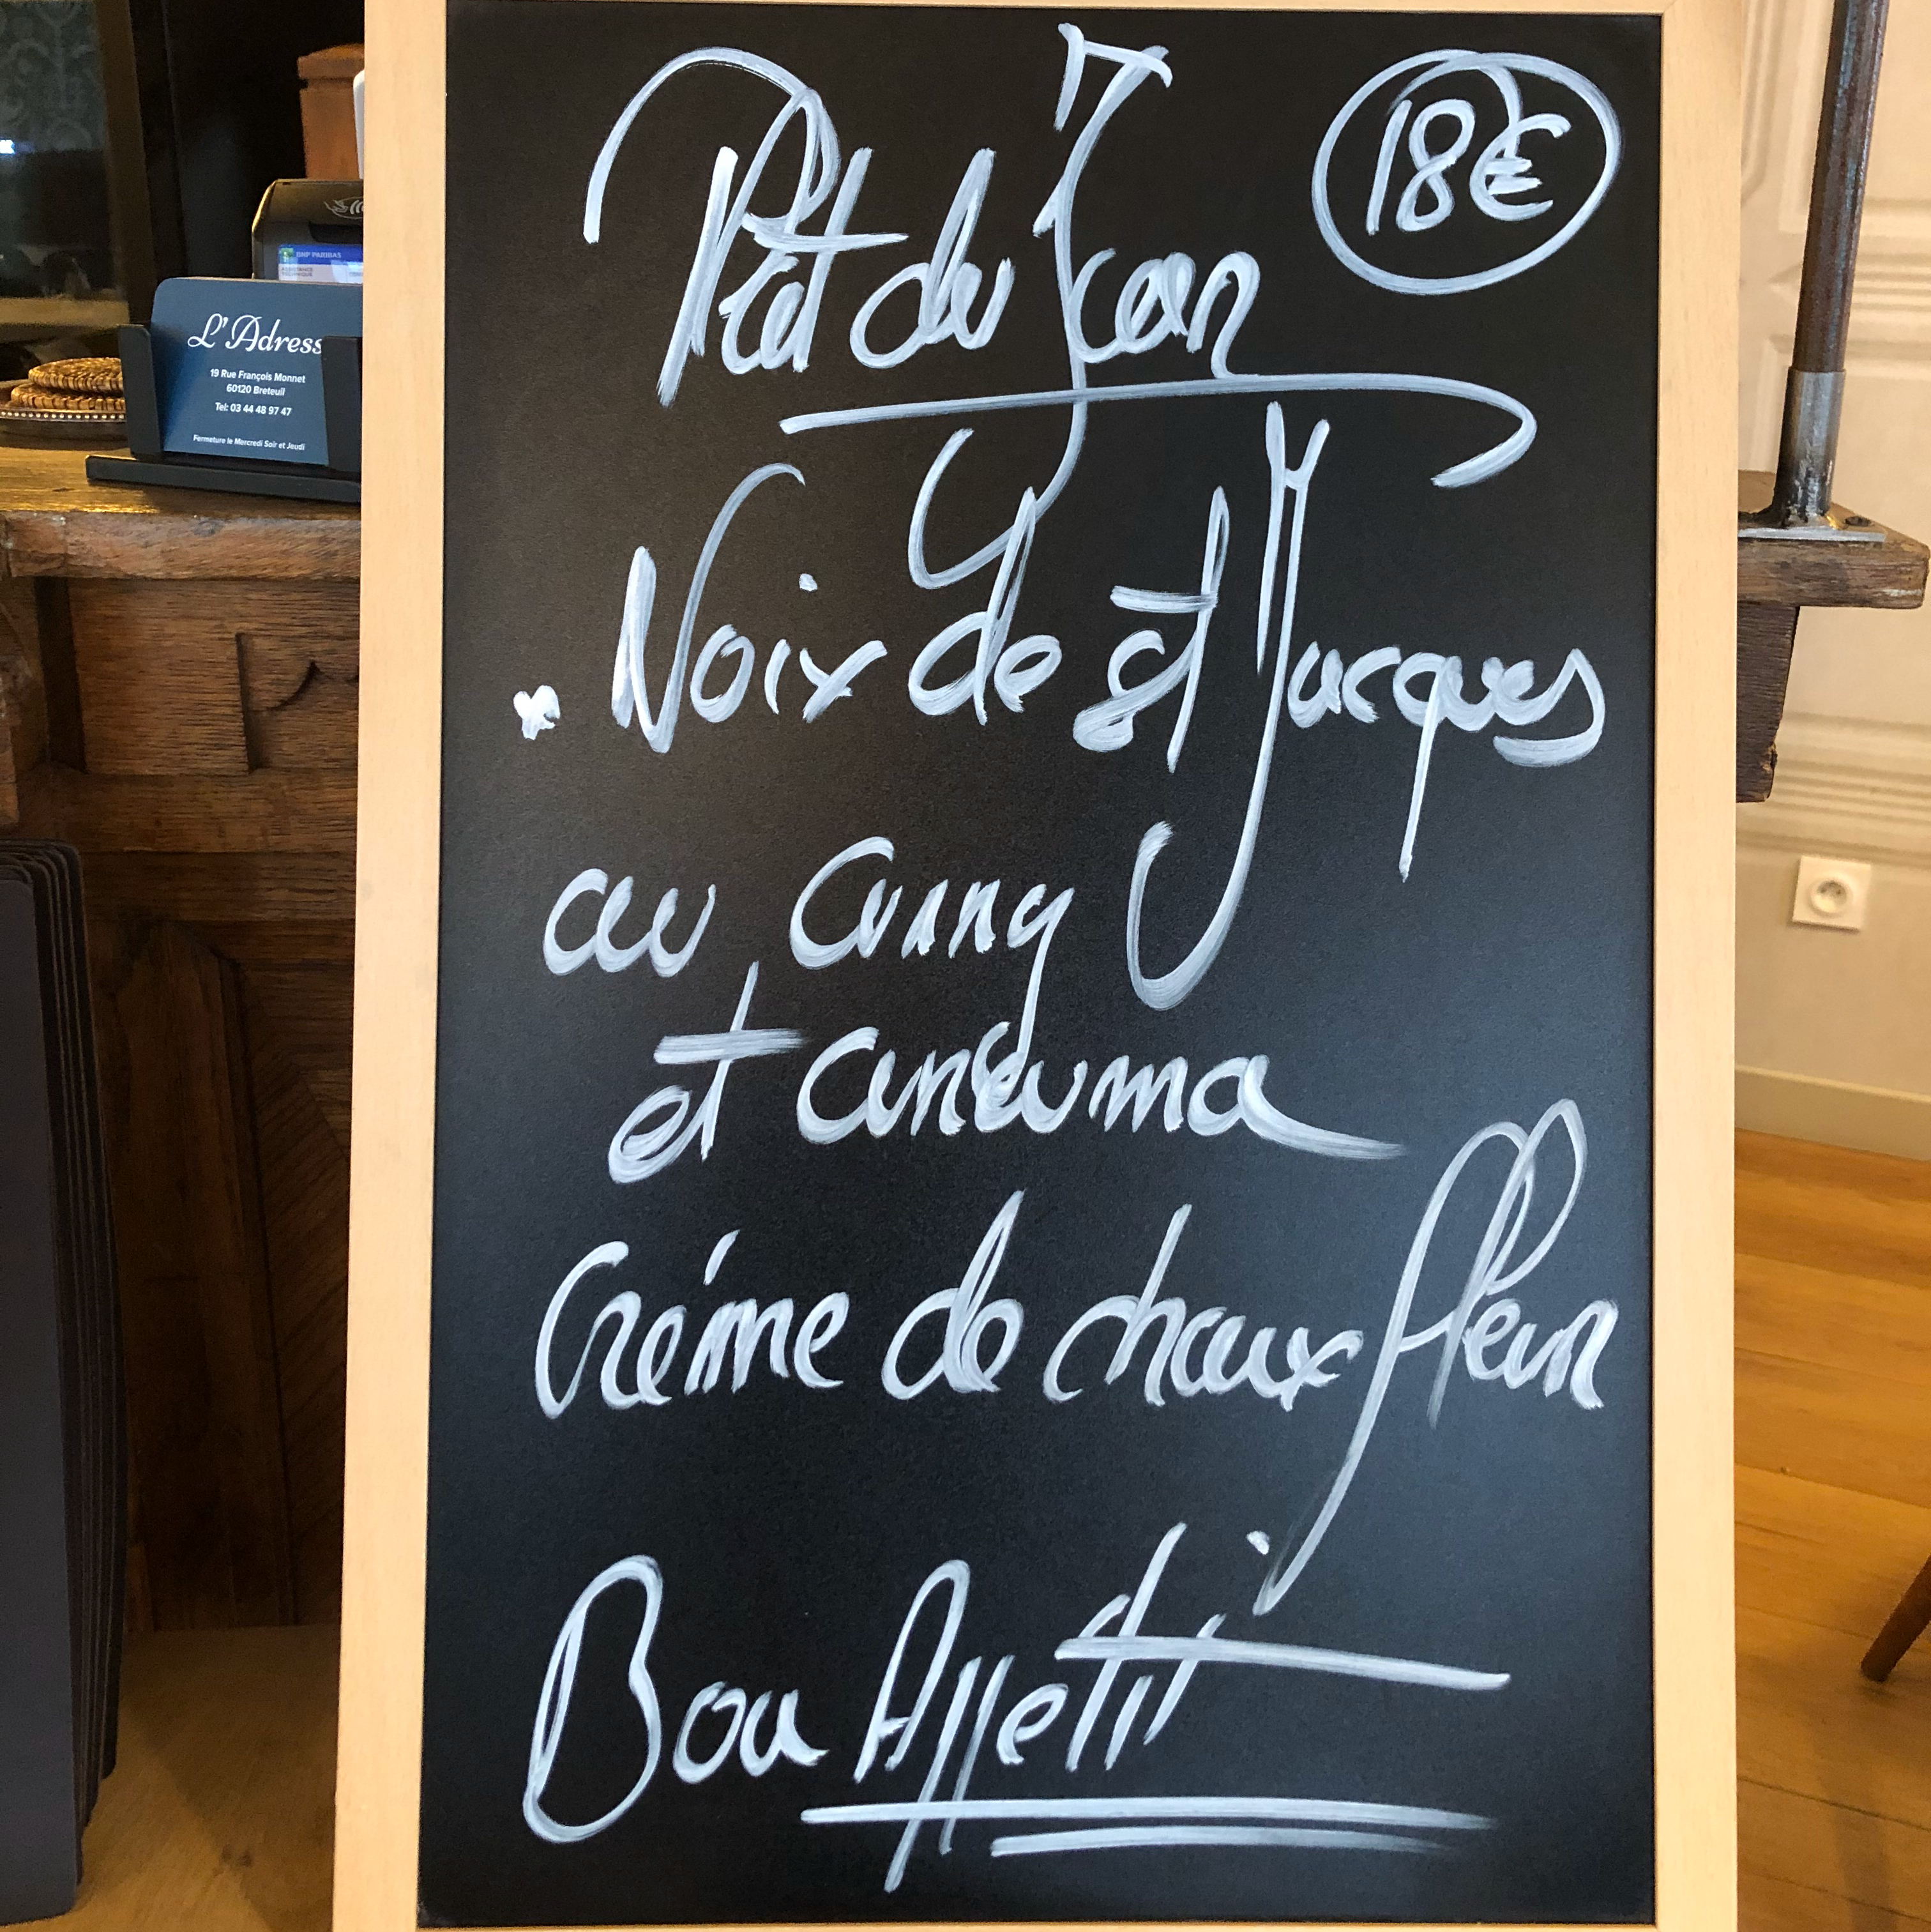 Plat du Jour
18€
. Noix de st Jacques
au Curry
et Curcuma
Créme de chaux fleur
Bon Appetit
L'Adress
19 Rue François Monnet
60120 Breteuil
Tel: 03 44 48 97 47
Fermeture le Mercredi Soir et Jeudi
BNP PARIBAS
ASSISTANCE
TECHNIQUE